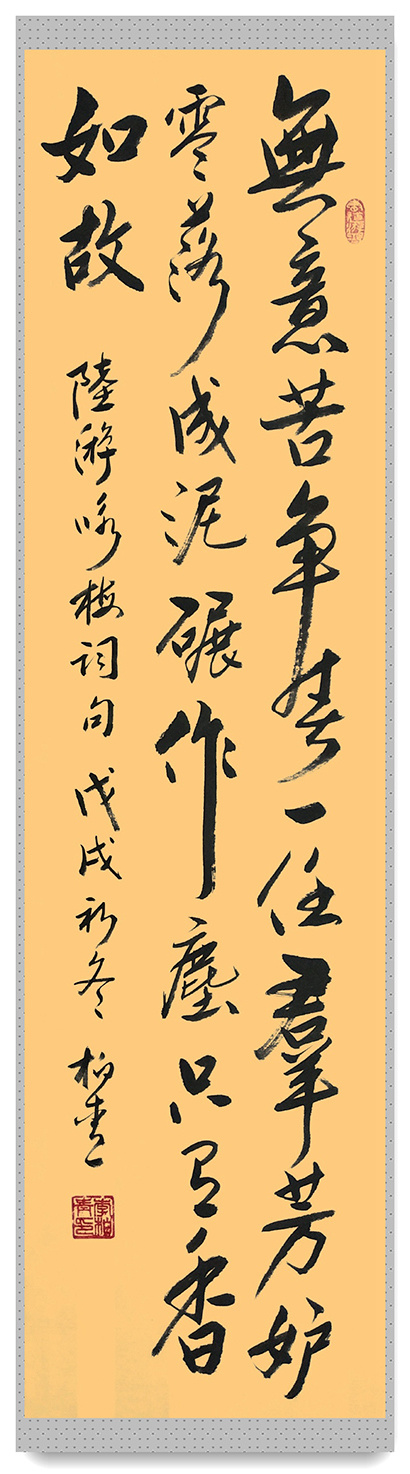 無意苦争春一任羣芳妒
零落成泥碾作塵只有香
如故
陸游咏梅詞句戊戌初冬柏青
李柏青印